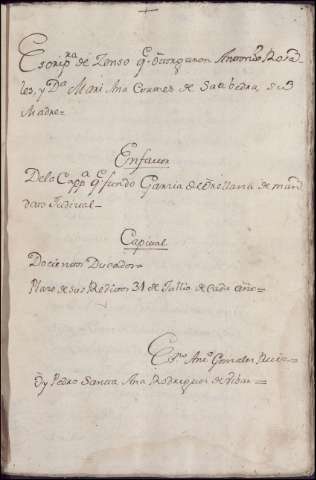 Escrip.ra de Zenso q.e otorgaron Antonio Rosa-
les, y D.a Mari Ana Corraes de Saabedra su
Madre
En favor
De la Capp.a q.e fundo Garcia de Orellana de man
dato Judicial=
Capital
Docientos Ducados
Plazo de sus Reditos 31 de Jullio de Cada año=
Ess.no Ant.o Gonzales
Oy Pedro Santa Ana Rodriguez de Vibar=